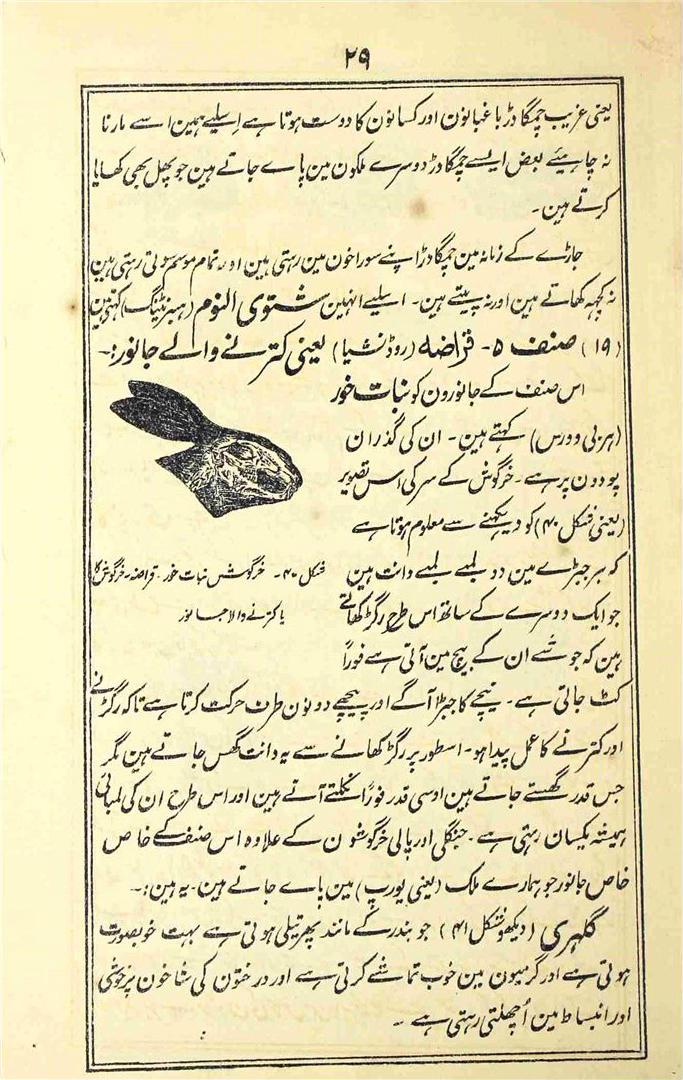 ۲۹
یعنی غریب چمگادڑ باغبانون اور کسانون کا دوست ہوتا ہے اسلیے ہمین اسے مارنا
نہ چاہیئے بعض ایسے چمگادڑ دوسرے ملکون مین پاے جاتے ہین جو پھل بھی کھایا
کرتے ہین۔
جاڑے کے زمانہ مین چمگادڑ اپنے سوراخون مین رہتی ہین اور تمام موسم سوتی رہتی ہین
نہ کچھ کھاتے ہین اور نہ پیتے ہین۔ اسلیے انہین شتوی النوم (ہیبرنٹینگ) کہتے ہین
(۱۹) صنف ۵۔ قراضہ (روڈنشیا) یعنی کترنے والے جانور:۔
اس صنف کے جانورون کو نبات خور
(ہربی وورس) کہتے ہین۔ ان کی گذران
پودون پر ہے۔ خرگوش کے سر کی اس تصویر
(یعنی شکل ۴۰) کو دیکھنے سے معلوم ہوتا ہے
کہ ہر جبڑے مین دو لمبے لمبے دانت ہین
جو ایک دوسرے کے ساتھ اس طرح رگڑ کھاتے
ہین کہ جو شے ان کے بیچ مین آتی ہے فوراً
شکل ۴۰۔ خرگوش نبات خور۔ قراضہ۔ خرگوش کا
یا کترنے والا جانور
کٹ جاتی ہے۔ نیچے کا جبڑا آگے اور پیچھے دونون طرف حرکت کرتا ہے تاکہ رگڑنے
اور کترنے کا عمل پیدا ہو۔ اسطور پر رگڑ کھانے سے یہ دانت گھس جاتے ہین مگر
جس قدر گھستے جاتے ہین اوسی قدر فوراً نکلتے آتے ہین اور اس طرح ان کی لمبائی
ہمیشہ یکسان رہتی ہے۔ جنگلی اور پالی خرگوشون کے علاوہ اس صنف کے خاص
خاص جانور جو ہمارے ملک (یعنی یورپ) مین پاے جاتے ہین۔ یہ ہین:۔
گلہری (دیکھو شکل ۴۱) جو بندر کے مانند پھرتیلی ہوتی ہے بہت خوبصورت
ہوتی ہے اور گرمیون مین خوب تماشے کرتی ہے اور درختون کی شاخون پر خوشی
اور انبساط مین اُچھلتی رہتی ہے۔